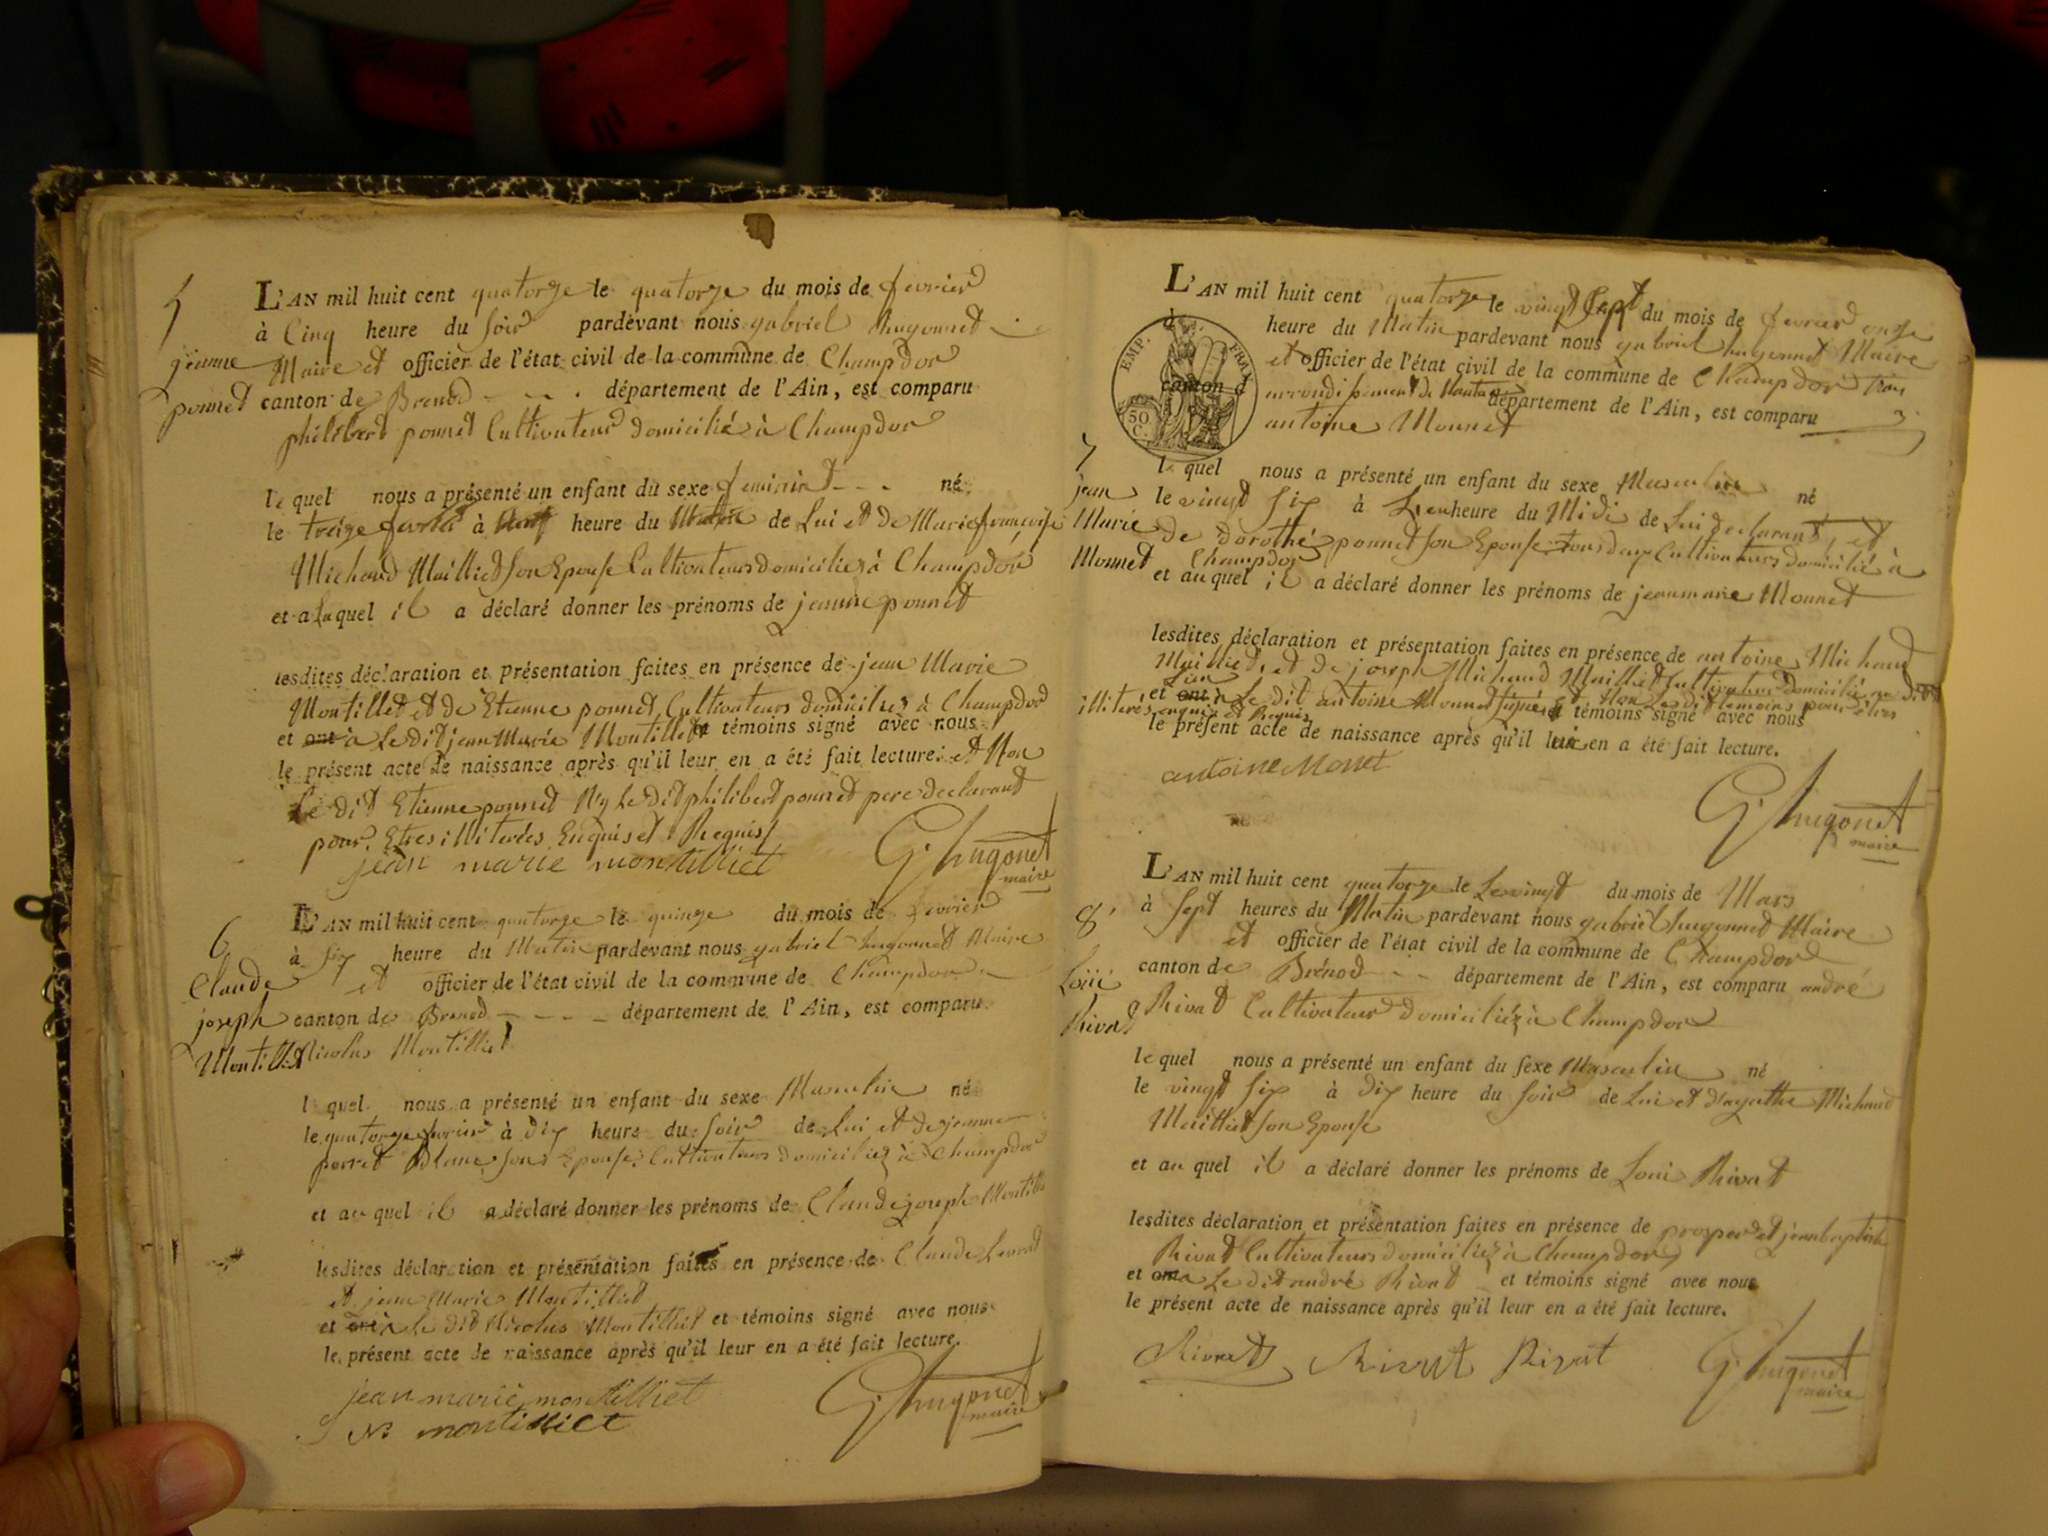 5
L'AN mil huit cent quatorze le quatorze du mois de fevrier
à Cinq heure du soir pardevant nous gabriel hugonnet
jeanne
Maire et officier de l'état civil de la commune de Champdor
ponnet
canton de Brenod département de l'Ain, est comparu
philibert ponnet Cultivateur domicilié à Champdor
le quel nous a présenté un enfant du sexe feminin né
le treize fevrier à heure du Matin de Lui et de Marie françoise
Michaud Mailliet son Epouse Cultivateurs domiciliez à Champdor
et a la quel il a déclaré donner les prénoms de jeanne ponnet
lesdites déclaration et présentation faites en présence de jean Marie
Montilliet et de Etienne ponnet Cultivateurs domiciliez à Champdor
et ont a Ledit jean Marie Montilliet et témoins signé avec nous
le présent acte de naissance après qu'il leur en a été fait lecture. et Non
Le dit Etienne ponnet Ny Le dit philibert ponnet pere declarant
pour Etres illiterés Enquis et Requis
jean marie montilliet
G. hugonet
maire
6
Claude
joseph
Montilliet
L'AN mil huit cent quatorze le quinze du mois de fevrier
à six heure du Matin pardevant nous gabriel hugonnet Maire
et officier de l'état civil de la commune de Champdor
canton de Brenod département de l'Ain, est comparu
Nicolas Montilliet
l quel nous a présenté un enfant du sexe Masculin né
le quatorze fevrier à dix heure du soir de Lui et de jeanne
perret Blanc son Epouse Cultivateurs domiciliez à Champdor
et au quel il a déclaré donner les prénoms de Claude joseph Montilliet
lesdites déclaration et présentation faites en présence de Claude Levrat
et jean Marie Montilliet
et ont a le dit Nicolas Montilliet et témoins signé avec nous
le présent acte de naissance après qu'il leur en a été fait lecture.
jean marie montilliet
N montilliet
G. hugonet
maire
L'AN mil huit cent quatorze le vingt sept du mois de fevrier onze
heure du Matin pardevant nous gabriel hugonnet Maire
et officier de l'état civil de la commune de Champdor
canton d arrondissement de Nantua département de l'Ain, est comparu
antoine Monnet
EMP. FRAN.
50
C.
7
jean
Marie
Monnet
le quel nous a présenté un enfant du sexe Masculin né
le vingt six à heure du Midi de Lui declarant, et
de dorothé ponnet son Epouse tous deux Cultivateurs domicilié à
Champdor
et au quel il a déclaré donner les prénoms de jeanmarie Monnet
lesdites déclaration et présentation faites en présence de antoine Michaud
Mailliet, et de joseph Michaud Mailliet Cultivateurs domicilié
et ont Le dit antoine Monnet signé et Non Les dit temoins pour être témoins signé avec nous
illiterés enquis et Requis
le présent acte de naissance après qu'il leur en a été fait lecture.
antoine Monet
G. hugonet
maire
8
Loui
Rivat
L'AN mil huit cent quatorze le Le vingt du mois de Mars
à sept heures du Matin pardevant nous gabriel hugonnet Maire
et officier de l'état civil de la commune de Champdor
canton de Brénod département de l'Ain, est comparu andré
Rivat Cultivateur domiciliéz à Champdor
le quel nous a présenté un enfant du sexe Masculin né
le vingt six à dix heure du soir de Lui et d'agathe Michaud
Mailliet son Epouse
et au quel il a déclaré donner les prénoms de Loui Rivat
lesdites déclaration et présentation faites en présence de prosper et jeanbaptiste
Rivat Cultivateurs domiciliez à Champdor
et ont a Le dit andré Rivat et témoins signé avec nous
le présent acte de naissance après qu'il leur en a été fait lecture.
Rivat Rivat Rivat
G. hugonet
maire